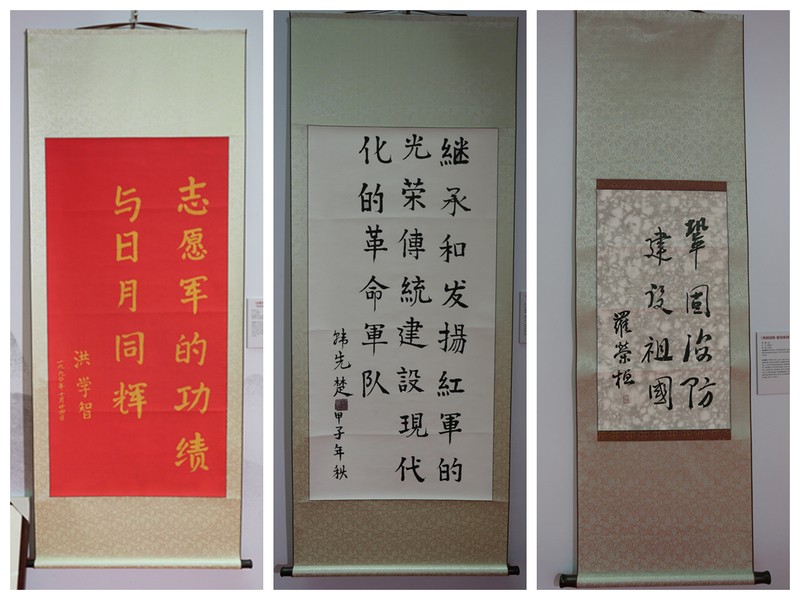 志愿军的功绩
与日月同辉
洪学智
一九九〇年十月廿四日
继承和发揚紅軍的
光荣傳統建設現代
化的革命軍队
韩先楚
甲子年秋
鞏固海防
建设祖國
羅榮桓